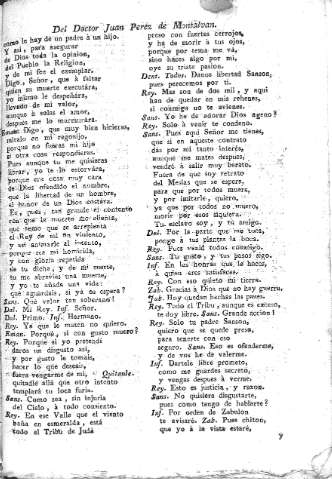 Del Doctor Juan Perez de Montalvan.
como le hay de un padre à un hijo.
Y asi, para asegurar
de Dios toda la opinion,
del Pueblo la Religion,
y de mi fee el exemplar.
Digo, Señor, que à faltar
quien su muerte executàra,
yo mismo le despeñàra,
llevado de mi valor,
aunque à solas el amor,
despues me lo murmuràra.
Digo, que muy bien hicieras,
en mi regocijo,
porque no fueras mi hijo
si otra cosa respondieras.
Pues aunque tu me quisieras
librar, yo te lo estorvàra,
porque era cosa muy clara
de Dios ofendido el nombre,
que la libertad de un hombre,
el honor de un Dios costàra.
Ea, pues, tan grande el contento
con que la muerte
que temo que se arrepienta
el Rey de mi fin violento,
y asi animarle al intento,
porque sea mi homicida,
y que quede repetida
tu dicha, y de mi muerte,
tu me abrevias una muerte,
y yo te añado una vida:
què aguardais, si ya os espera?
Sans. Què valor tan soberano!
Del. Mi Rey. Inf. Señor.
Del. Primo. Inf. Hermano.
Rey. Ya que le maten no quiero.
Eman. Porquè, si con gusto muero?
Rey. Porque si yo pretendí
daros un disgusto asi,
y por gusto le tomais,
hacer lo que deseais,
fuera vengarme de mì. Quitanle.
quitadle allà que otro intento
templarà tu loca furia.
Sans. Como sea, sin injuria
del Cielo, à todo consiento.
Rey. En ese Valle que el viento
baña en esmeralda, està
todo el Tribu de Judà
preso con fuertes cerrojos,
y ha de morir à tus ojos,
porque por tema me và,
sino haces algo por mi,
oye su triste pasion.
Dent. Todos. Danos libertad Sanson,
pues perecemos por ti.
Rey. Mas son de dos mil, y aqui
han de quedar en mis rehenes,
si conmigo no te avienes.
Sans. Yo he de adorar Dios ageno?
Rey. Solo à venir te condeno.
Sans. Pues aqui Señor me tienes,
que si en aqueste contrato
dàs por mi tanto interès,
aunque me mates despues,
vendrè à salir muy barato.
Fuera de que soy retrato
del Mesias que se espera,
para que por todos muera,
y por imitarle, quiero,
ya que por todos no muero,
morir por esos siquiera.
Tu esclavo soy, y tu amigo.
Del. Por la parte que me toca,
pongo à tus plantas la boca.
Rey. Pues venid todos conmigo.
Sans. Tu gusto, y tus pasos sigo.
Inf. En las honras que le haces,
à quien eres satisfaces.
Rey. Con eso quieto mi tierra.
Zab. Gracias à Dios que no hay guerra.
Jab. Hoy quedan hechas las paces.
Rey. Todo el Tribu, aunque es exceso,
te doy libre. Sans. Grande accion!
Rey. Solo tu padre Sanson,
quiero que se quede preso,
para tenerte con eso
seguro. Sans. Eso es ofenderme,
y de vos he de valerme.
Inf. Dartele libre prometo,
como me guardes secreto,
y vengas despues à verme.
Rey. Esto es justicia, y razon.
Sans. No quisiera disgustarte,
pues como tengo de hablarte?
Inf. Por orden de Zabulon
te avisarè. Zab. Pues chiton,
que yo à la vista estarè,
y